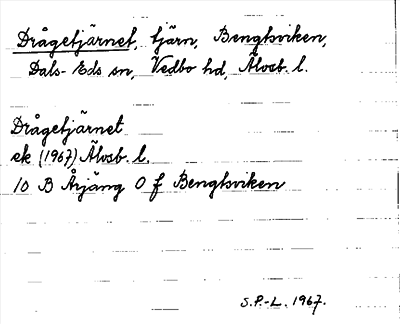 Drågetjärnet, tjärn, Bengtsviken,
Dals-Eds sn, Vedbo hd, Älvsb. l.
Drågetjärnet
ek (1967) Älvsb. l.
10 B Årjäng 0 f Bengtsviken
S.P.-L. 1967.